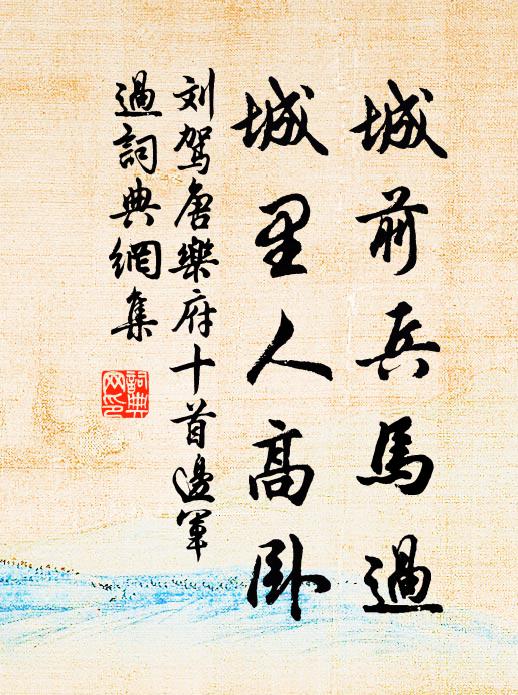 城前兵馬過
城里人高卧
刘駕唐樂府十首邊軍
過詞典網集
詞典
网印